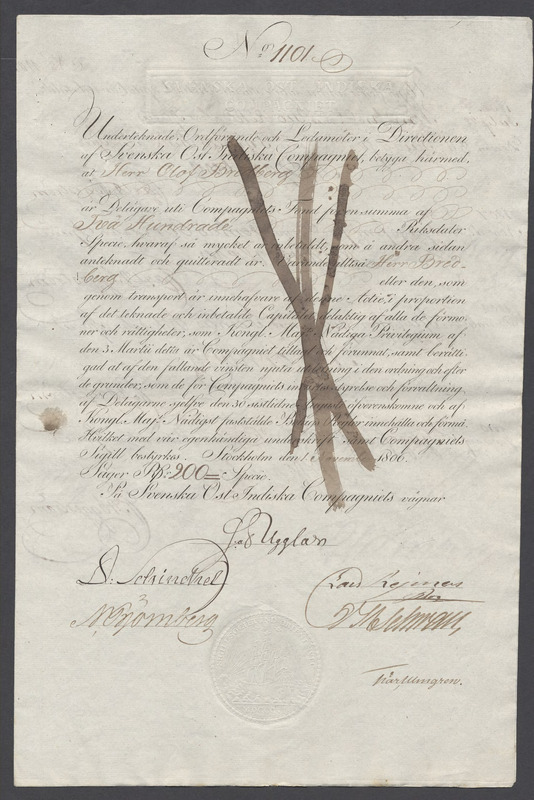 No 1101.
Underteknade Ordförande och Ledamöter i Directionen
af Svenska Ost Indiska Compagniet, betyga härmed,
at Herr Olof
är Delägare uti Compagniets Fond för en summa af
Två Hundrade Riksdaler
Specie, hvaraf så mycket är inbetaldt, som å andra sidan
anteknadt och quitteradt är. Varande altså Herr Bred-
berg eller den, som
genom transport är innehafvare af denne Actie, i proportion
af det teknade och inbetalde Capitalet delaktig af alla de förmo-
ner och rättigheter, som Kongl. Maj:ts Nådiga Privilegium af
den 3 Martii detta år Compagniet tillagt och förunnat, samt berätti-
gad at af den fallande vinsten njuta utdelning i den ordning och efter
de grunder, som de för Compagniets inre styrelse och förvaltning
af Delägarne sjelfve den 30 sistlidne öfverenskomne och af
Kongl. Maj:t Nådigst faststälde Reglor innehålla och förmå.
Hvilket med vår egenhändiga underskrift samt Compagniets
Sigill bestyrkes. Stockholm den 1806.
Säger Rd:r 200 Specie.
På Svenska Ost Indiska Compagniets vägnar
Ugglas
D. Schinchel
Lars Reimers